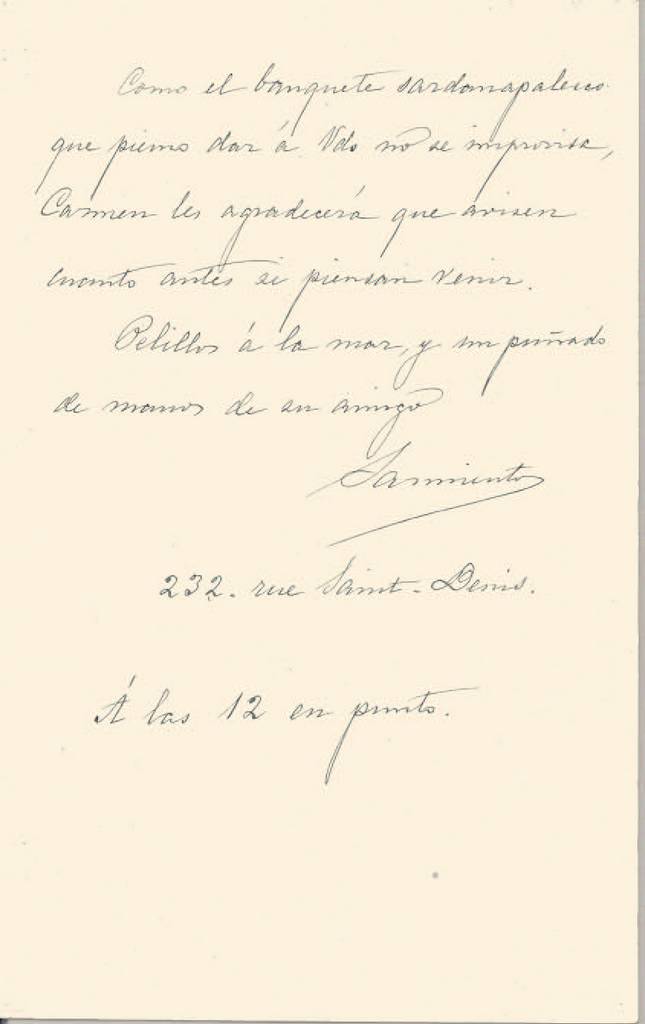 Como el banquete sardanapalesco
que pienso dar á Vds no se improvisa,
Carmen les agradecerá que avisen
cuanto antes si piensan venir.
Pelillos á la mar, y un puñado
de manos de su amigo
Sarmiento
232. rue Saint-Denis.
Á las 12 en punto.